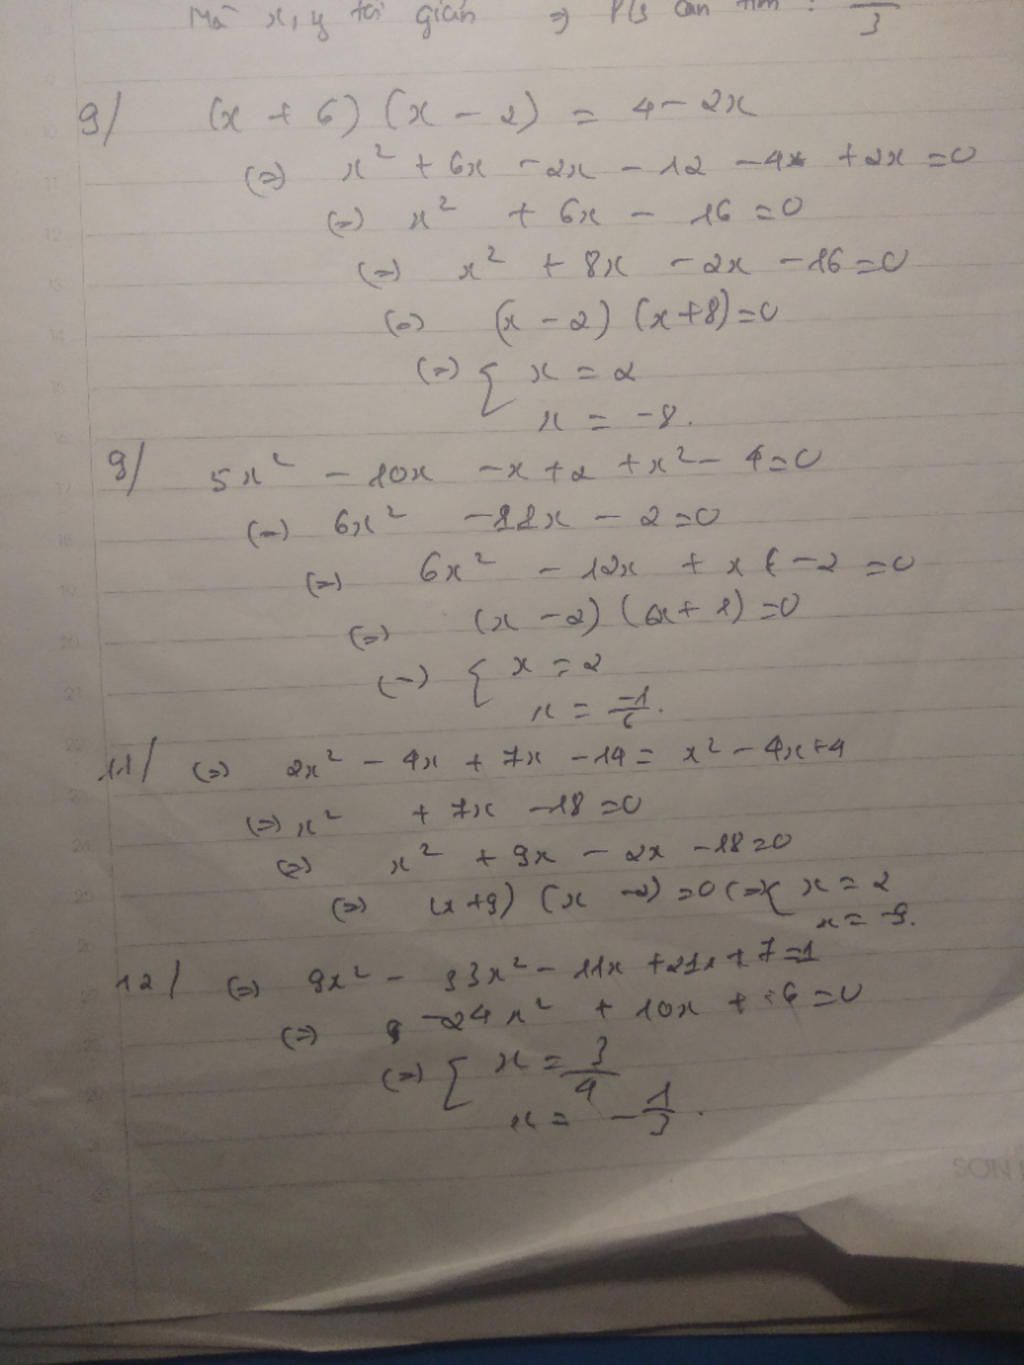 Mà x, y tối giản => P/s cần tìm : /3
9/ (x + 6) (x - 2) = 4 - 2x
(=) x² + 6x - 2x - 12 - 4 + 2x = 0
(=) x² + 6x - 16 = 0
(=) x² + 8x - 2x - 16 = 0
(=) (x - 2) (x + 8) = 0
(=) { x = 2
x = -8.
9/ 5x² - 10x - x + 2 + x² - 4 = 0
(=) 6x² - 11x - 2 = 0
(=) 6x² - 12x + x - 2 = 0
(=) (x - 2) (6x + 1) = 0
(=) { x = 2
x = -1/6.
11/ (=) 2x² - 4x + 7x - 14 = x² - 4x + 4
(=) x² + 7x - 18 = 0
(=) x² + 9x - 2x - 18 = 0
(=) (x + 9) (x - 2) = 0 (=) { x = 2
x = -9.
12/ (=) 9x² - 33x² - 11x + 21x + 7 = 1
(=) -24x² + 10x + 6 = 0
(=) { x = 3/4
x = -1/3.
SON